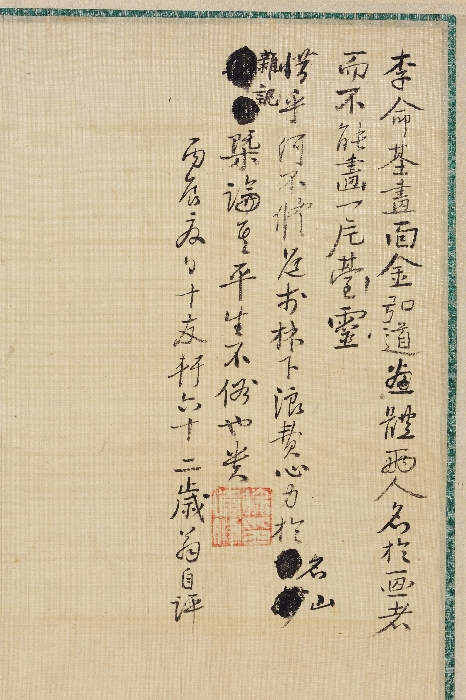 李命基畫面金弘道畫體兩人名於画者
而不能畫一片㚓靈
惜乎何不修道於林下浪費心力於名山
雜記槩論其平生不俗也貴
丙辰夏日十友軒六十二歲翁自評